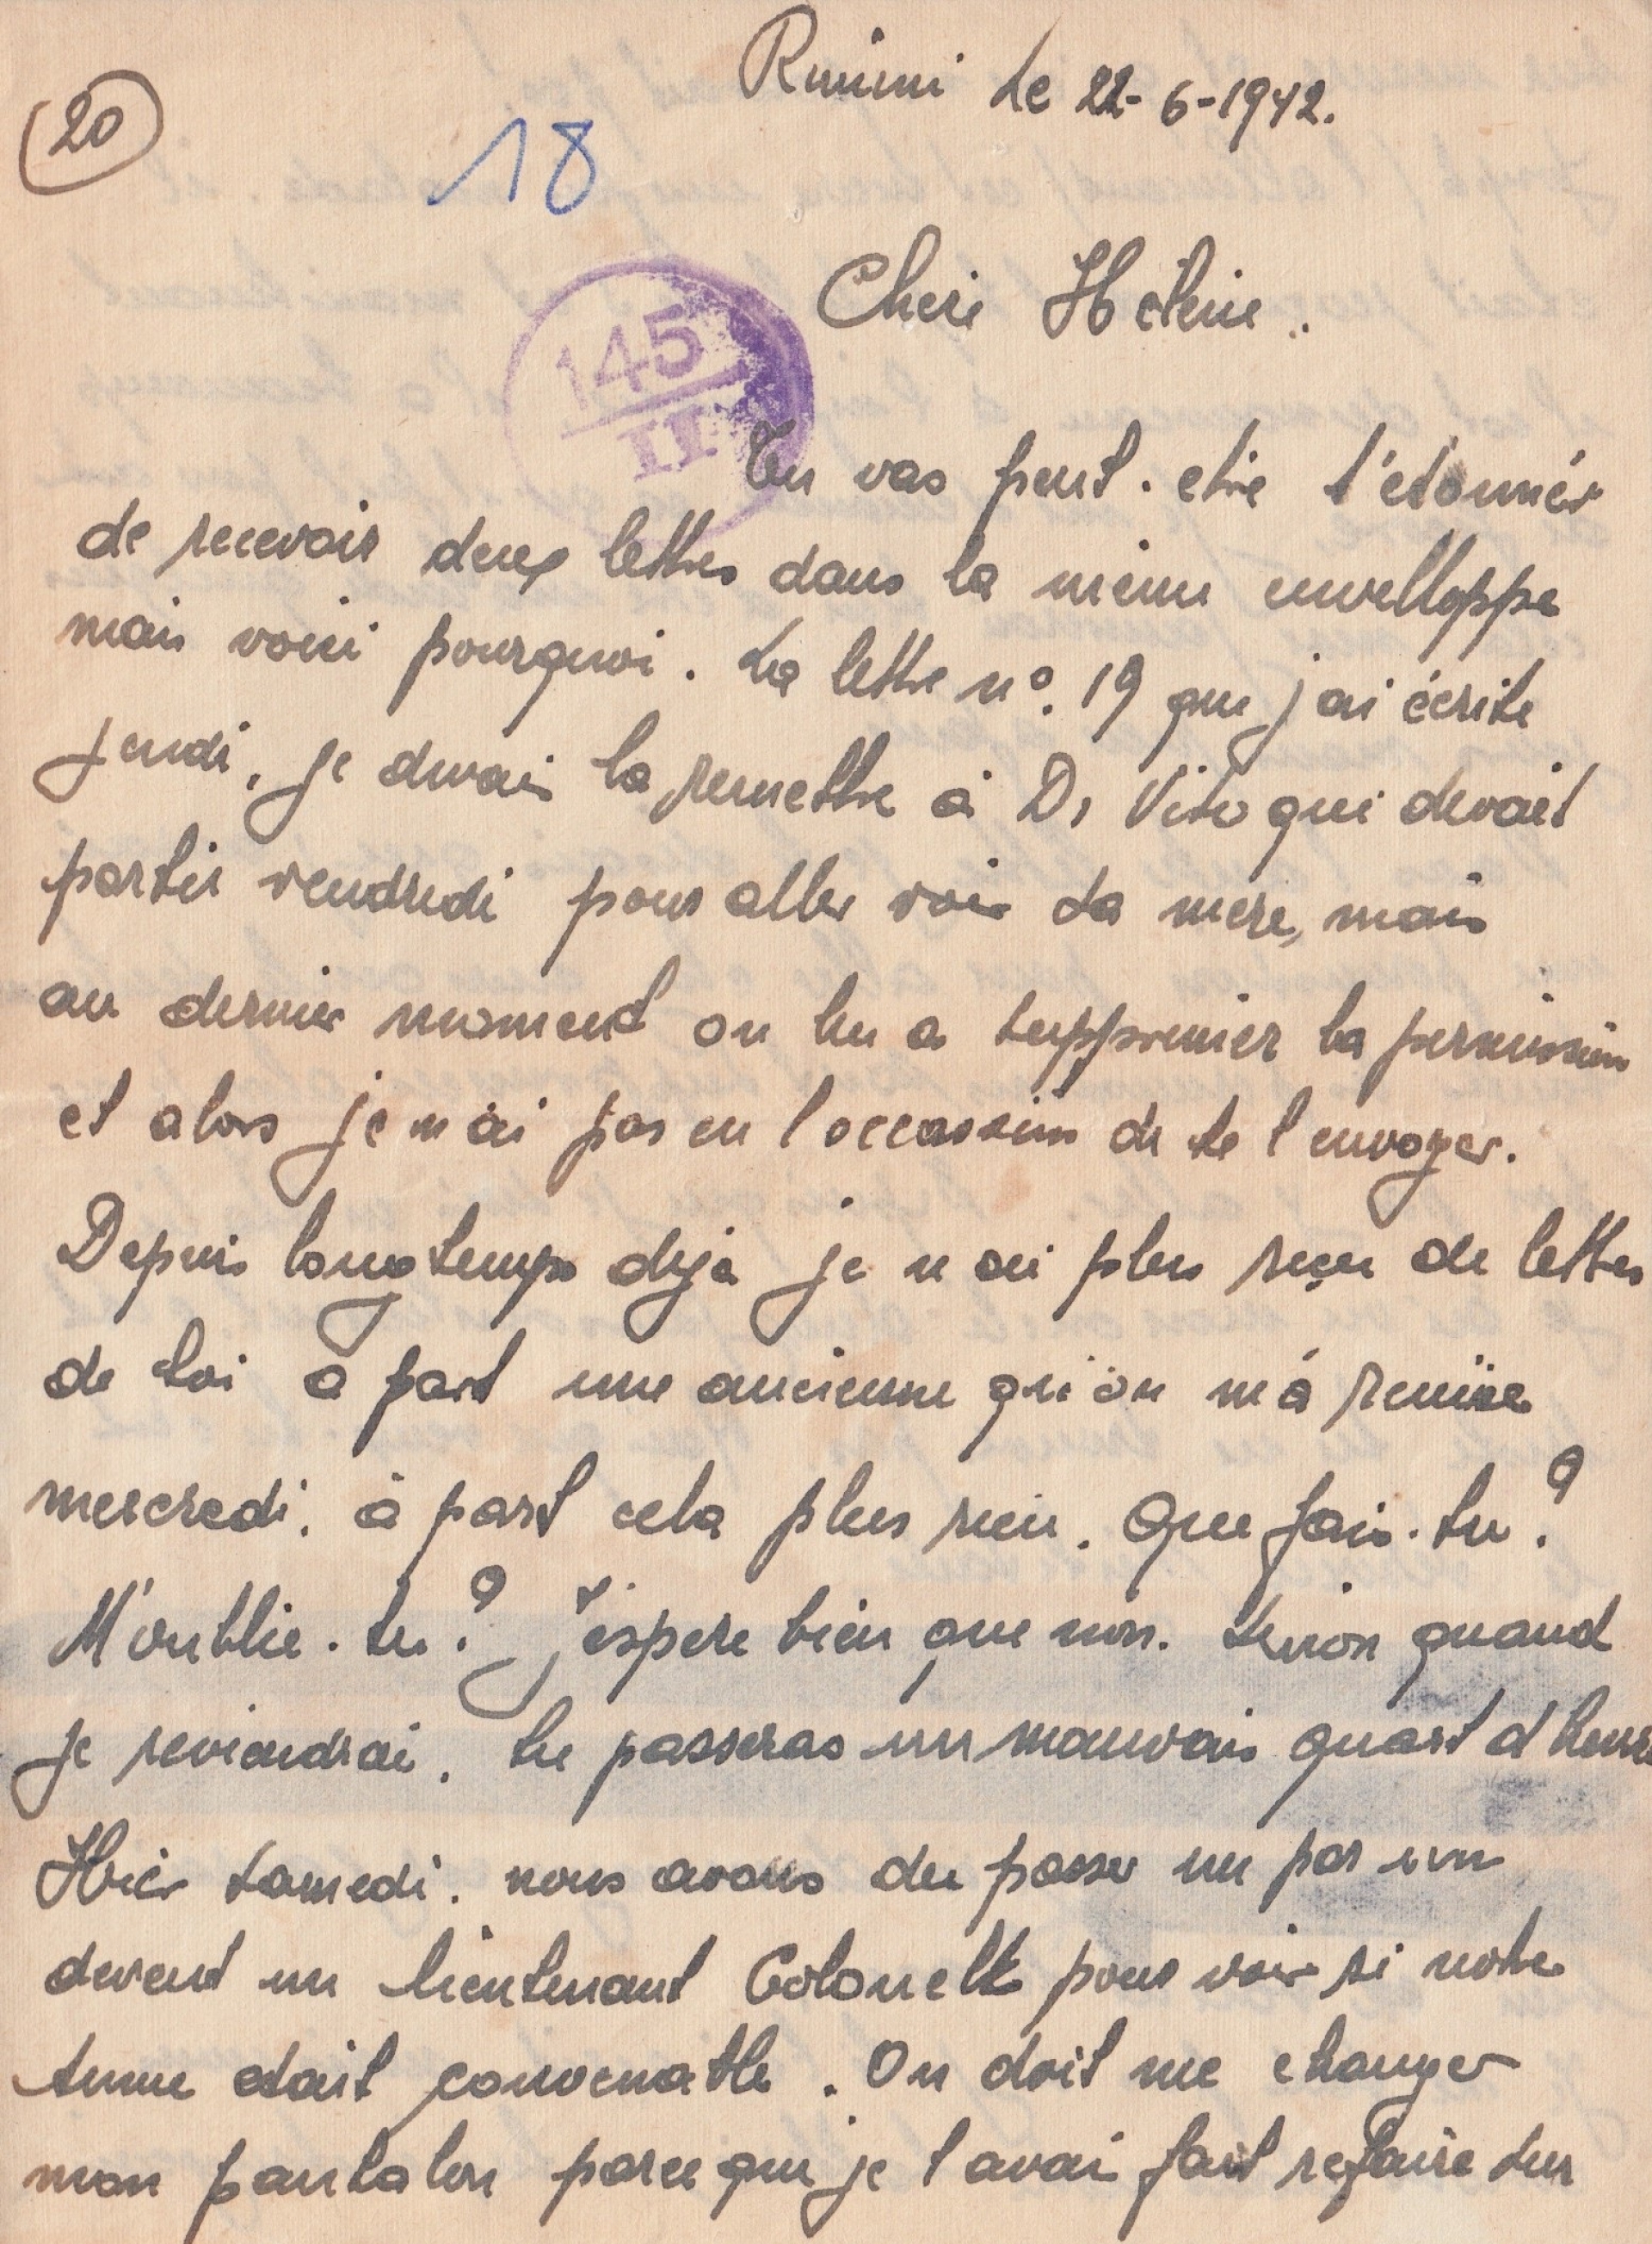 Rimini Le 22-6-1942.
20
18
145
II
Cheri Helene.
Tu vas peut-etre t'étonnér
de recevoir deux lettres dans la meme envelloppe
mais voici pourquoi. La lettre n°. 19 que j'ai écrite
jeudi, je devais la remettre à Di Vito qui devait
partir vendredi pour aller voir sa mere, mais
au dernier moment on lui a supprimér la permission
et alors je n'ai pas eu l'occassion de te l'envoyer.
Depuis longtemps deja je n'ai plus reçu de lettres
de toi a part une ancienne qu'on m'a remise
mercredi. à part cela plus rien. Que fais-tu?
M'oublie-tu? J'éspere bien que non. Sinon quand
je reviendrai, tu passeras un mauvais quart d'heure
Hier samedi. nous avons du passer un par un
devent un lieutenant Colonell pour voir si notre
tenue etait convenable. On doit me changer
mon pantalon parce que je l'avai fait refaire sur